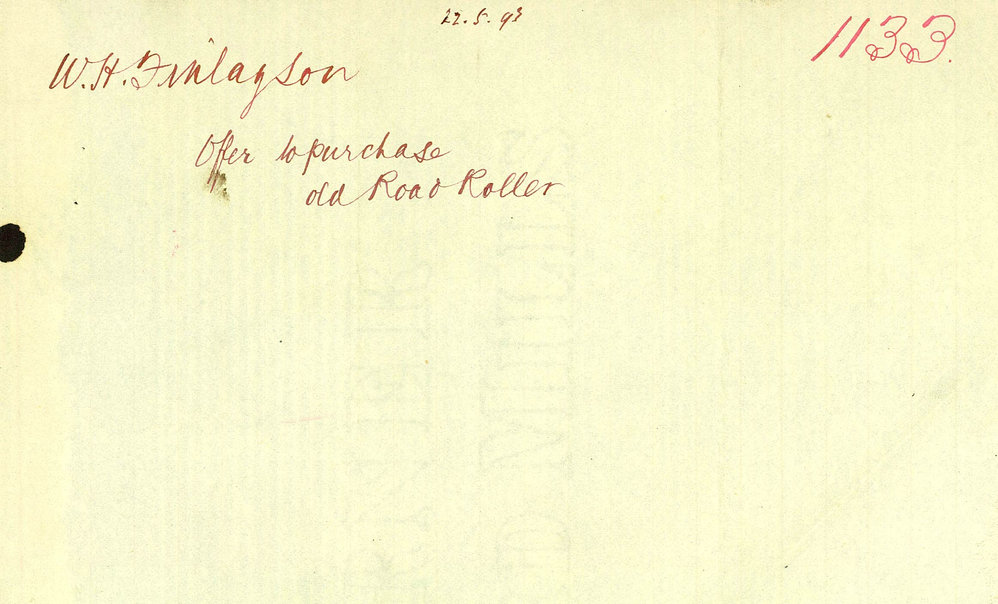 22.5.93
1133.
W.H. Finlayson
Offer to purchase
old Road Roller